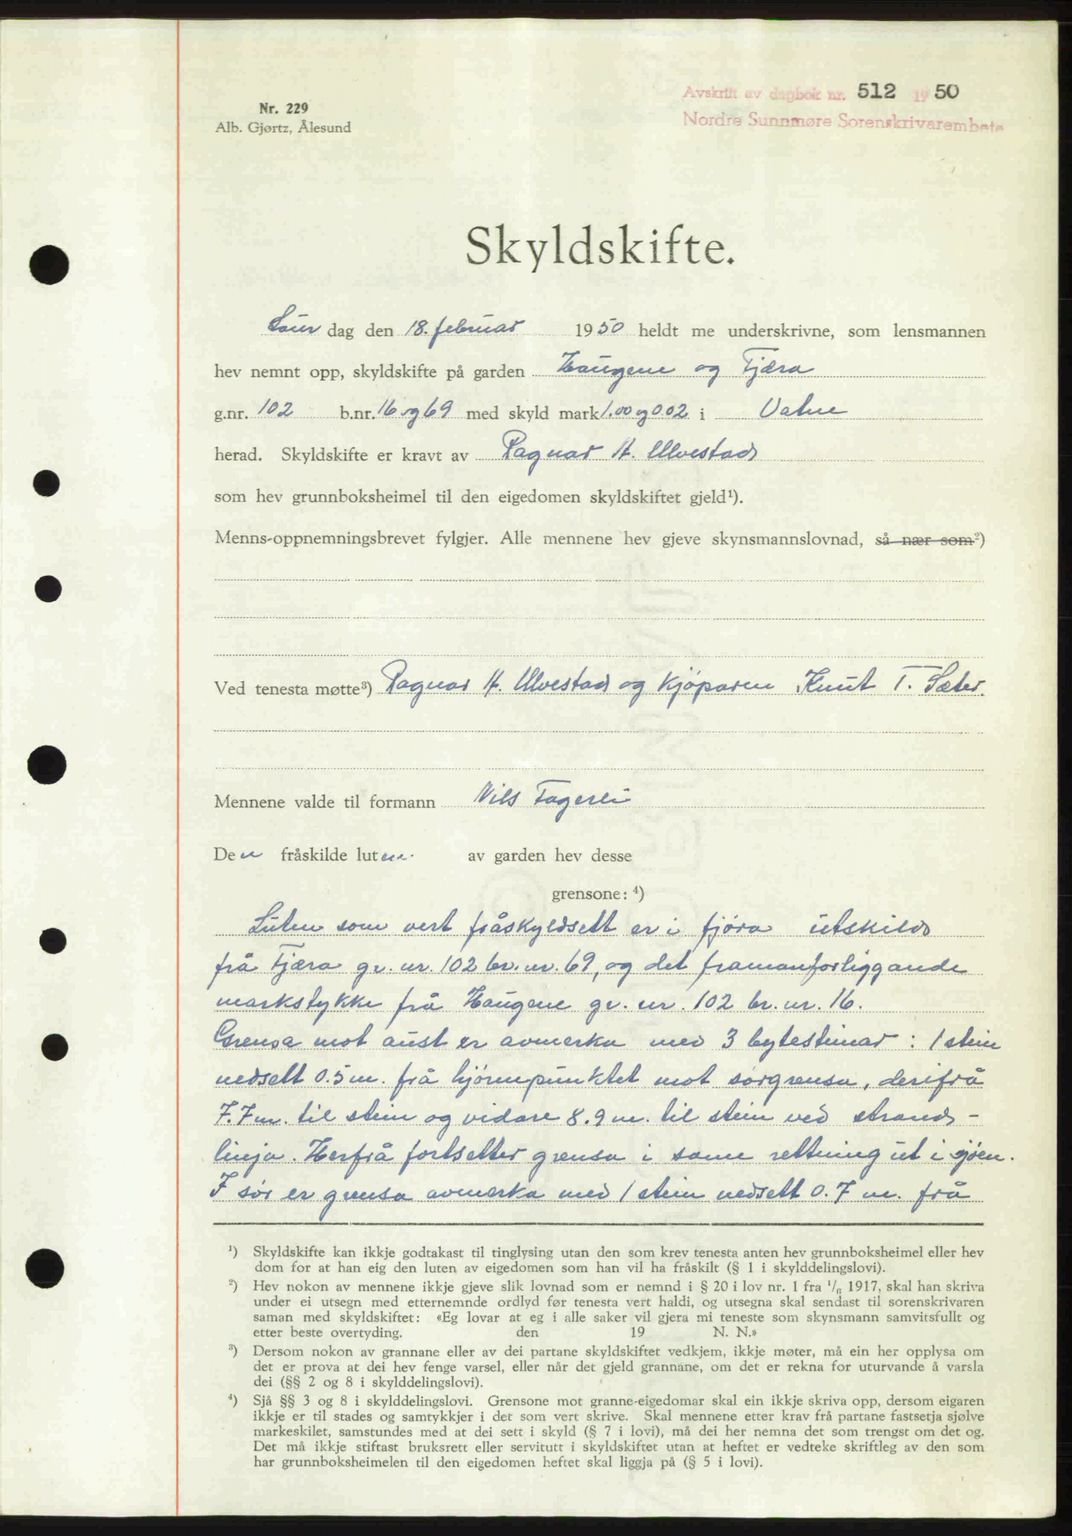 Avskrift av dagbok nr. 512 1950
Nordre Sunnmøre Sorenskrivarembete
Nr. 229
Alb. Gjørtz, Ålesund
Skyldskifte.
Laurdag den 18. februar 1950 heldt me underskrivne, som lensmannen
hev nemnt opp, skyldskifte på garden Haugene og Fjæra
g.nr. 102 b.nr. 16 og 69 med skyld mark 1.00 og 0.02 i Vatne
herad. Skyldskifte er kravt av Ragnar H. Ulvestad
som hev grunnboksheimel til den eigedomen skyldskiftet gjeld¹).
Menns-oppnemningsbrevet fylgjer. Alle mennene hev gjeve skynsmannslovnad, så nær som²)
Ved tenesta møtte³) Ragnar H. Ulvestad og kjøparen Knut T. Sæter.
Mennene valde til formann Nils Fagerli
Den fråskilde luten av garden hev desse
grensone: ⁴)
Luten som vert fråskyldsett er i fjøra utskild
frå Fjæra gr. nr. 102 br. nr. 69, og det framanforliggande
markstykke frå Haugene gr. nr. 102 br. nr. 16.
Grensa mot aust er avmerka med 3 bytesteinar: 1 stein
nedsett 0.5 m. frå hjørnepunktet mot sørgrensa, derifrå
7.7 m. til stein og vidare 8.9 m. til stein ved strand-
linja. Herfrå fortsetter grensa i same rettning ut i sjøen.
I sør er grensa avmerka med 1 stein nedsett 0.7 m. frå
¹) Skyldskifte kan ikkje godtakast til tinglysing utan den som krev tenesta anten hev grunnboksheimel eller hev
dom for at han eig den luten av eigedomen som han vil ha fråskilt (§ 1 i skylddelingslovi).
²) Hev nokon av mennene ikkje gjeve slik lovnad som er nemnd i § 20 i lov nr. 1 fra ¹/₆ 1917, skal han skriva
under ei utsegn med etternemnde ordlyd før tenesta vert haldi, og utsegna skal sendast til sorenskrivaren
saman med skyldskiftet: «Eg lovar at eg i alle saker vil gjera mi teneste som skynsmann samvitsfullt og
etter beste overtyding. den 19 N. N.»
³) Dersom nokon av grannane eller av dei partane skyldskiftet vedkjem, ikkje møter, må ein her opplysa om
det er prova at dei hev fenge varsel, eller når det gjeld grannane, om det er rekna for uturvande å varsla
dei (§§ 2 og 8 i skylddelingslovi).
⁴) Sjå §§ 3 og 8 i skylddelingslovi. Grensone mot granne-eigedomar skal ein ikkje skriva opp, dersom eigaren
ikkje er til stades og samtykkjer i det som vert skrive. Skal mennene etter krav frå partane fastsetja sjølve
markeskilet, samstundes med at dei sett i skyld (§ 7 i lovi), må dei her nemna det som trengst om det og.
Det må ikkje stiftast bruksrett eller servitutt i skyldskiftet utan at heftet er vedteke skriftleg av den som
har grunnboksheimelen til den eigedomen heftet skal liggja på (§ 5 i lovi).